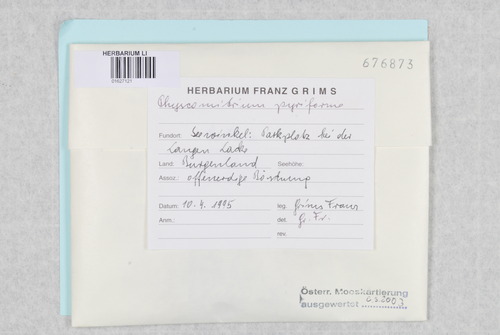 HERBARIUM LI
01627121
676873
HERBARIUM FRANZ GRIMS
Physcomitrium pyriforme
Fundort: Seewinkel: Parkplatz bei der
Langen Lacke
Land: Burgenland Seehöhe:
Assoz.: offenerdige Böschung
Datum: 10.4.1995 leg. Grims Franz
Anm.: det. Gr. Fr.
rev.
Österr. Mooskartierung
ausgewertet